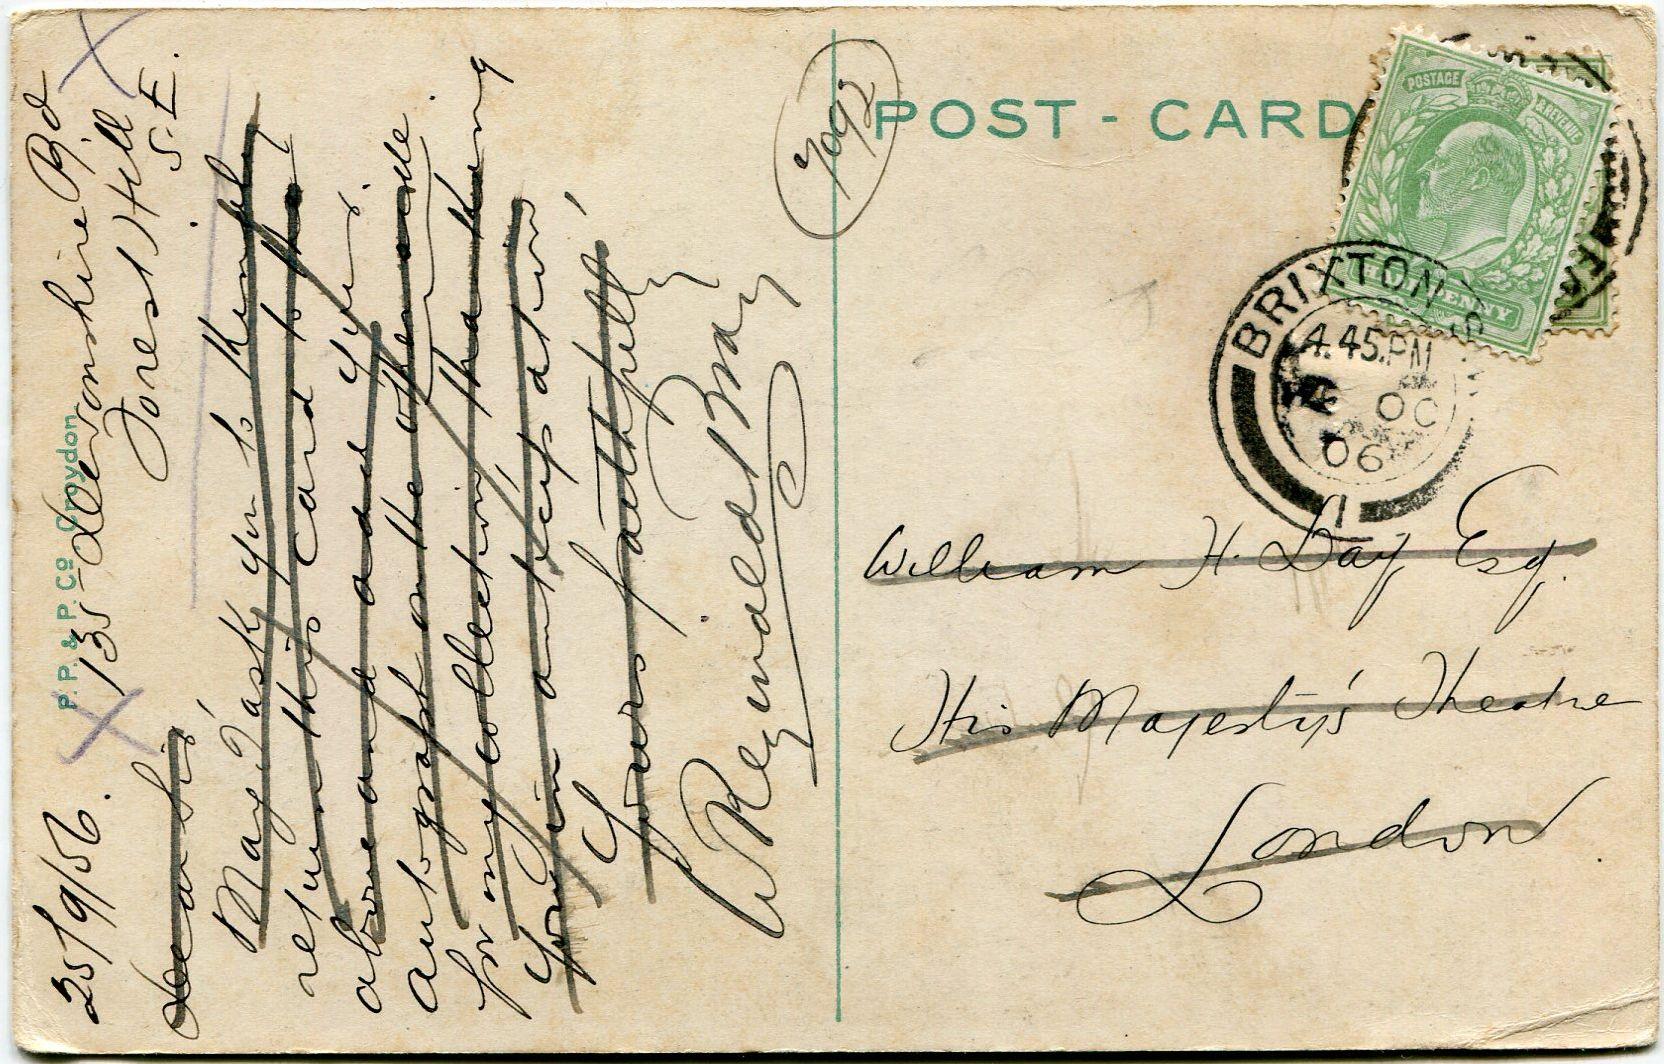 25/9/06.
135 Devonshire Rd
Forest Hill
S.E.
Dear Sir,
May I ask you to kindly
return this card to the
above and add your
autograph on the other side
for my collection, thanking
you in anticipation
Yours faithfully
W Reginald Bray
P.P. & P. Co Croydon
7092
POST - CARD
POSTAGE & REVENUE
PENNY
BRIXTON
4.45.PM
OC
06
11
William H. Day Esq.
His Majesty's Theatre
London.